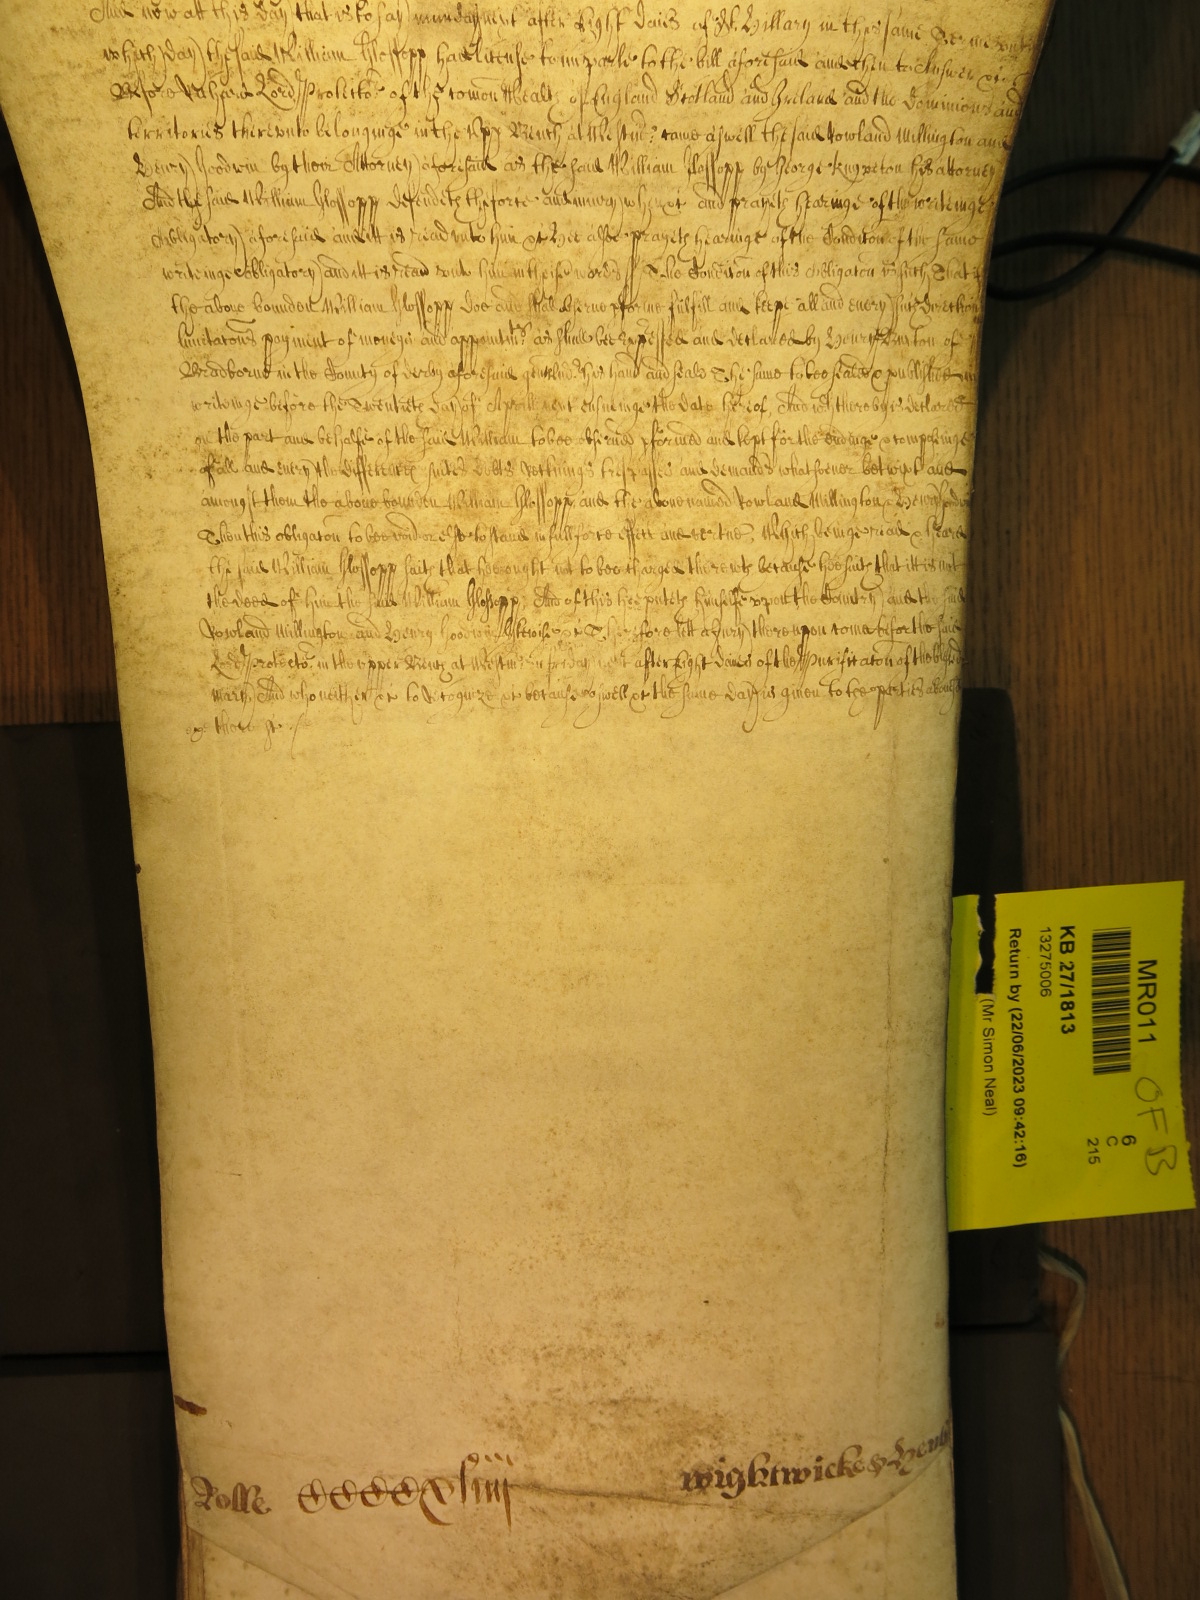 And now att this day that is to say munday next after Eight daies of St. Hillary in this same Terme untill
which day the said William Glossopp had license to imparle to the bill aforesaid and then to answer &c
Before Richard Lord Protector of the Comon Wealth of England Scotland and Ireland and the Dominions and
territories thereunto belonginge in the Upp Bench at Westmr came aswell the said Rowland Millington and
Henry Goodwin by their Attorney aforesaid as the said William Glossopp by George Knyveton his attorney
And the said William Glossopp defendeth the force and iniury when &c and prayeth hearinge of the writeinge
Obligatory aforesaid and itt is read unto him &c Hee alsoe prayeth hearinge of the Condicon of the same
writeinge obligatory and itt is read unto him in theis words The Condicon of this obligacon is such That if
the above bounden William Glossopp doe and shall observe pforme fulfill and keepe all and every such direction
limitacons payment of moneys and appointmts as shalbee expressed and declared by Henry Buxton of
Bradborne in the County of derby aforesaid gent under his hand and seale The same to bee sealed & published in
writeinge before the Twentieth day of Aprill next ensueinge the date hereof And is thereby declared
on the part and behalfe of the said William to bee observed pformed and kept for the endinge & composeinge
of all and every the differences suites debts reckninges trespasses and demands whatsoever betwixt and
amongst them the above bounden William Glossopp and the above named Rowland Millington & Henry Goodwin
Then this obligacon to bee void or else to stand in full force effect and vertue Which beinge read & heard
the said William Glossopp saith that hee ought not to bee charged therewth because hee saith that itt is not
the deed of him the said William Glossopp And of this hee puteth himselfe upon the Country and the said
Rowland Millington and Henry Goodwin likewise &c Therefore lett a Jury thereupon come before the said
Lord Protector in the upper Bench at Westmr on friday next after Eight daies of the Purificacon of the blessed
mary And who neither &c to Recognize &c because aswell &c the same day is given to the parties aforesd
there &c
Rolle CCCCxliiii
Wightwicke & Henl
MR011
KB 27/1813
13275006
Return by (22/06/2023 09:42:16)
(Mr Simon Neal)
6
C
215
OF B